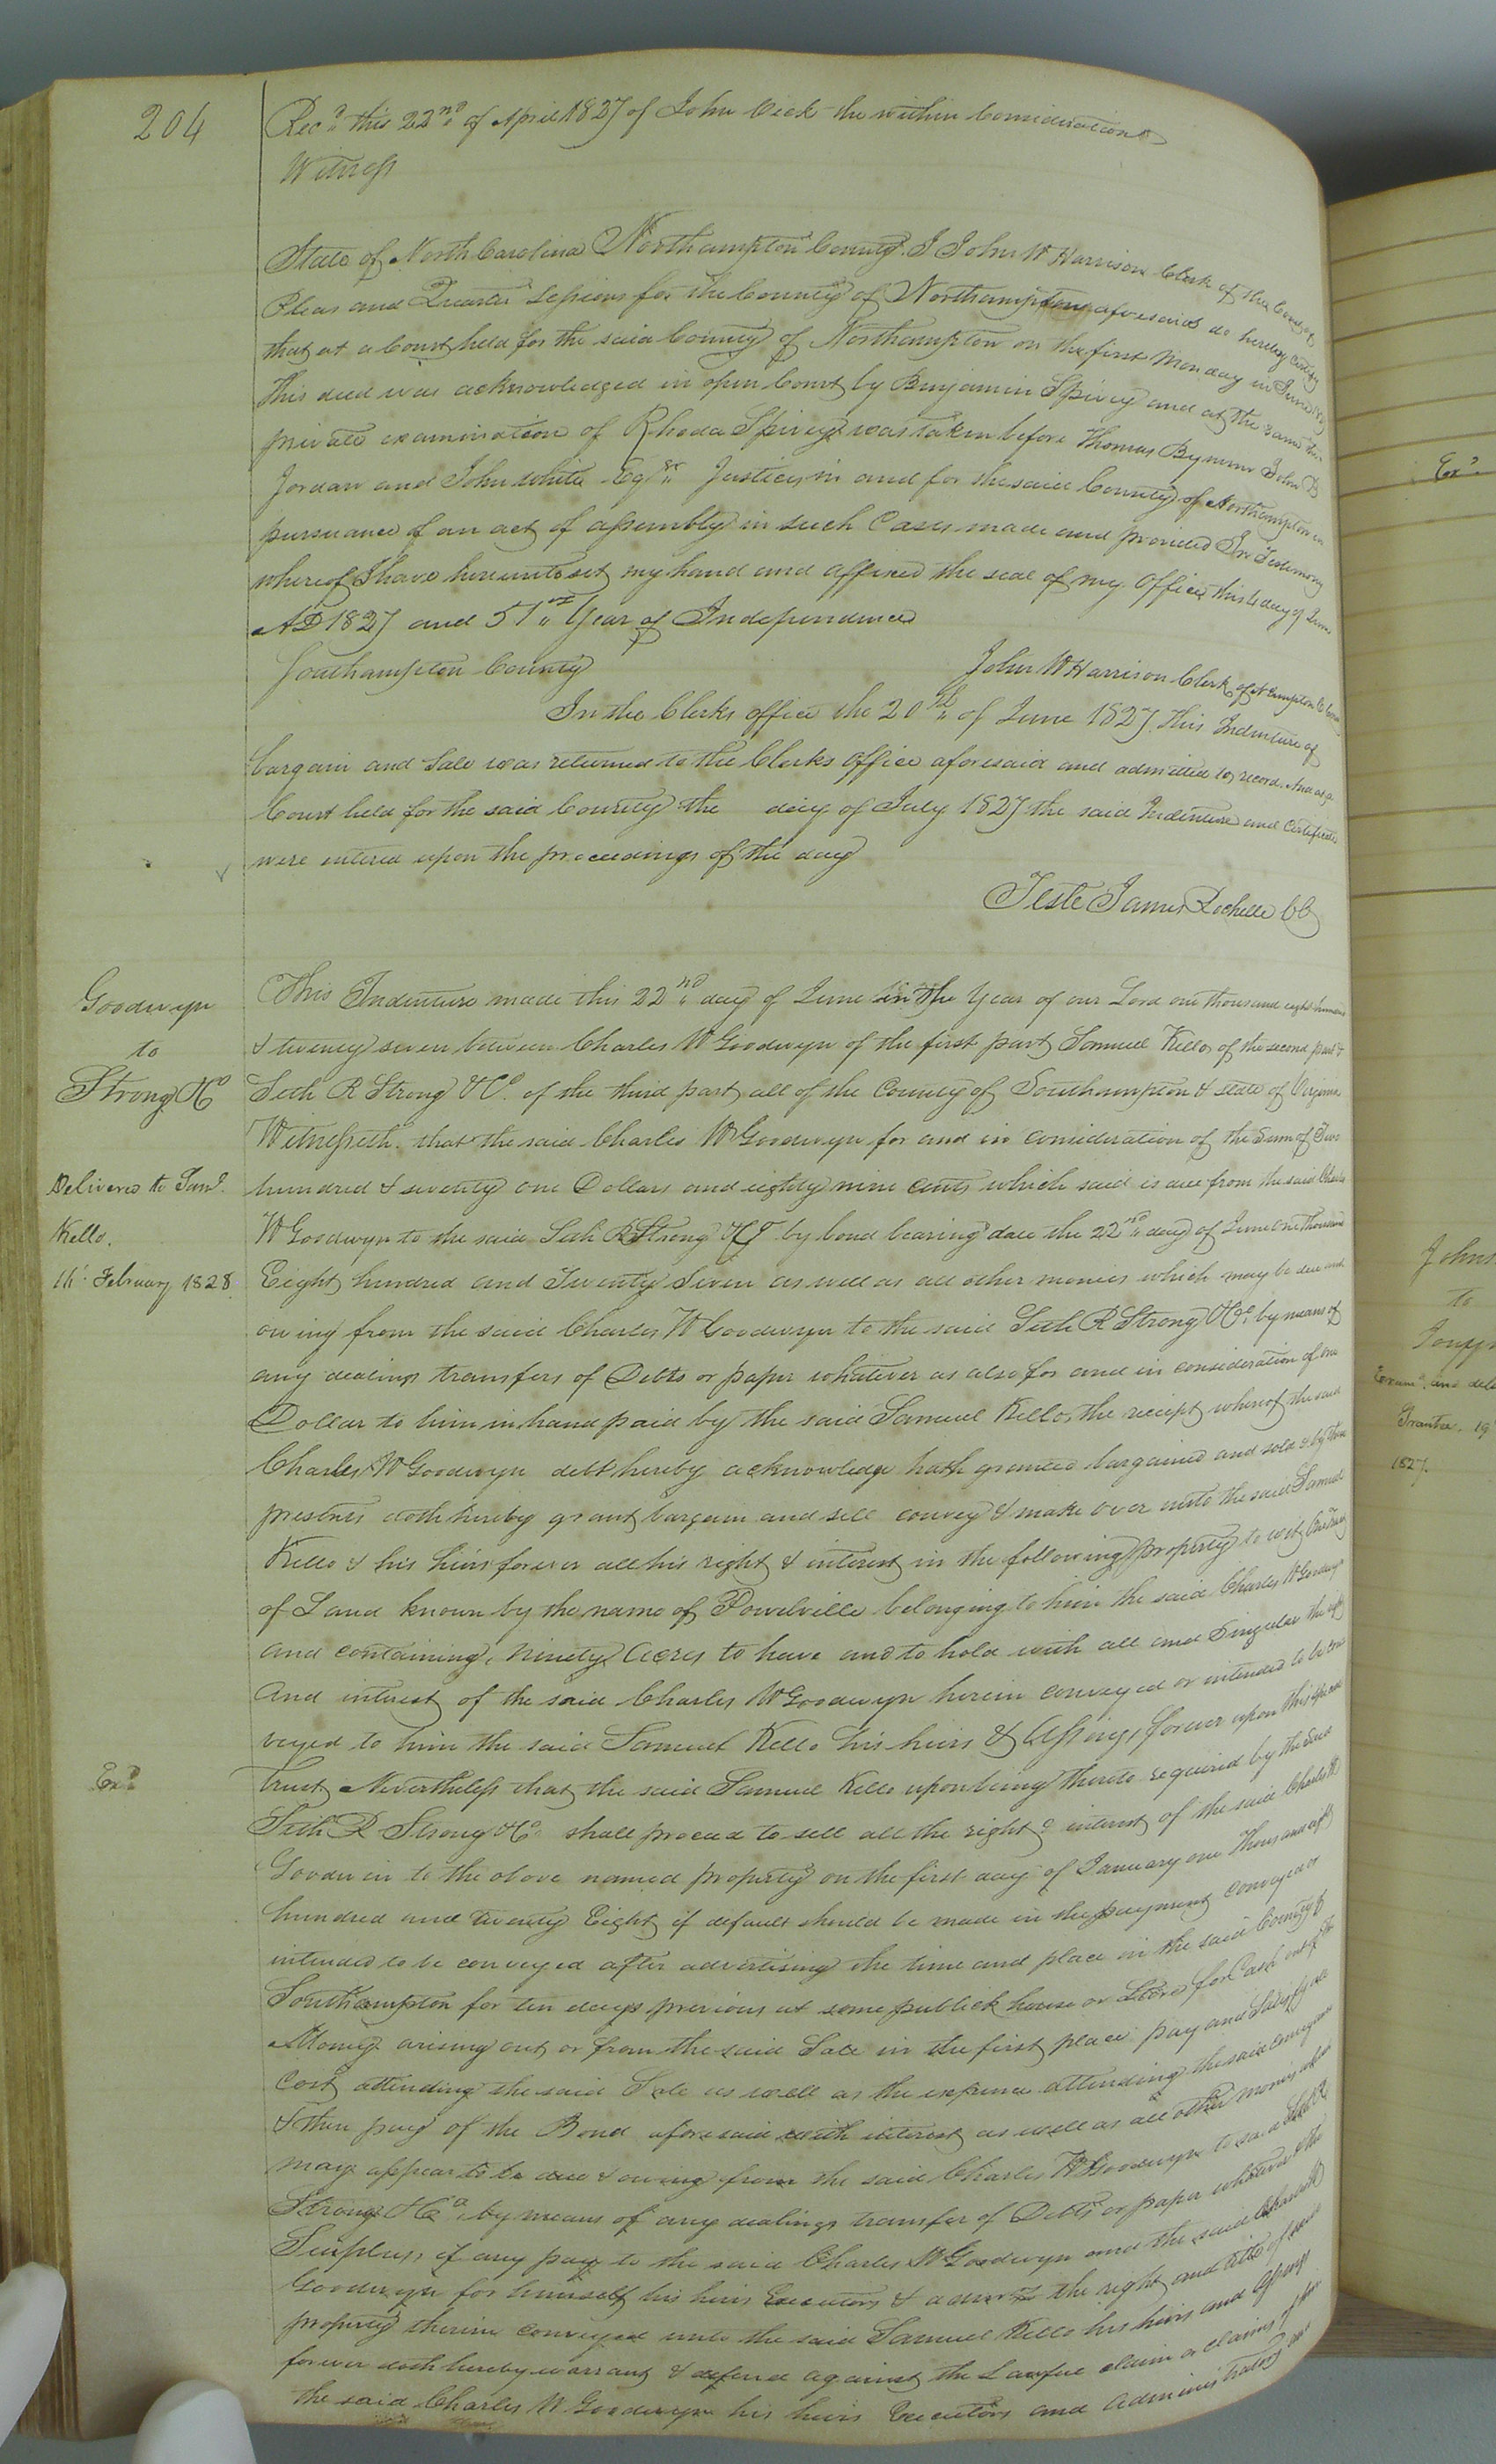 204
Rec.d this 22nd of April 1827 of John Cick the within Consideration
Witness
State of North Carolina Northampton County. I John W Harrison Clerk of the Court of
Pleas and Quarter Sessions for the County of Northampton aforesaid do hereby certify
that at a Court held for the said County of Northampton on the first Monday in June
This deed was acknowledged in open Court by Benjamin Spivey and at the same time
private examination of Rhoda Spivey was taken before Thomas Bynum John B
Jordan and John White Esqrs Justices in and for the said County of Northampton in
pursuance of an act of assembly in such Cases made and provided In Testimony
whereof I have hereunto set my hand and affixed the seal of my Office this 4 day of June
AD 1827 and 51st Year of Independence
John W Harrison Clerk of N Hampton C Court
Southampton County
In the Clerks office the 20th of June 1827. This Indenture of
bargain and Sale was returned to the Clerks Office aforesaid and admitted to record. And at a
Court held for the said County the day of July 1827 the said Indenture and Certificate
were entered upon the proceedings of the day
Teste James Rochelle CC
Goodwyn
to
Strong & Co
Delivered to Saml.
Kello.
11 February 1828
This Indenture made this 22nd day of June in the Year of our Lord one thousand eight hundred
& twenty seven between Charles W Goodwyn of the first part Samuel Kello of the second part &
Seth R Strong & Co. of the third part all of the County of Southampton & State of Virginia
Witnesseth. that the said Charles W Goodwyn for and in consideration of the Sum of Two
hundred & seventy one Dollars and eighty nine cents which said is due from the said Charles
W Goodwyn to the said Seth R Strong & Co by bond bearing date the 22nd day of June One thousand
Eight hundred and Twenty Seven as well as all other monies which may be due and
owing from the said Charles W Goodwyn to the said Seth R Strong & Co. by means of
any dealings transfers of Debts or paper whatever as also for and in consideration of one
Dollar to him in hand paid by the said Samuel Kello, the receipt whereof the said
Charles W Goodwyn doth hereby acknowledge hath granted bargained and sold & by these
presents doth hereby grant bargain and sell convey & make over unto the said Samuel
Kello & his heirs forever all his right & interest in the following property to wit One Tract
of Land known by the name of Powelville belonging to him the said Charles W Goodwyn
and containing ninety Acres to have and to hold with all and Singular the right
And interest of the said Charles W Goodwyn herein conveyed or intended to be con
veyed to him the said Samuel Kello his heirs & Assings forever upon this special
Exd
trust Nevertheless that the said Samuel Kello upon being thereto required by the said
Seth R Strong & Co. shall proceed to sell all the right & interest of the said Charles W
Goodwin to the above named property on the first day of January one Thousand eight
hundred and twenty Eight if default should be made in the payment conveyed or
intended to be conveyed after advertising the time and place in the said County of
Southampton for ten days previous at some publick house or Store for Cash out of the
Money arising out or from the said Sale in the first place pay and Satisfy all
Cost attending the said Sale as well as the expence attending the said conveyance
& then pay of the Bond aforesaid with interest as well as all other monies which
may appear to be due & owing from the said Charles W Goodwyn to said Seth R
Strong & Co. by means of any dealings transfer of Debts or paper whatever & the
Surplus, if any pay to the said Charles W Goodwyn and the said Charles W
Goodwyn for himself his heirs Executors & admrs the right and title of said
property therein conveyed unto the said Samuel Kello his heirs and assings
forever doth hereby warrant & defend against the Lawfue claim or claims of him
the said Charles W Goodwyn his heirs Executors and administrators
Exd
Johns
to
Examd. and deld
Grantee, 19
1827.